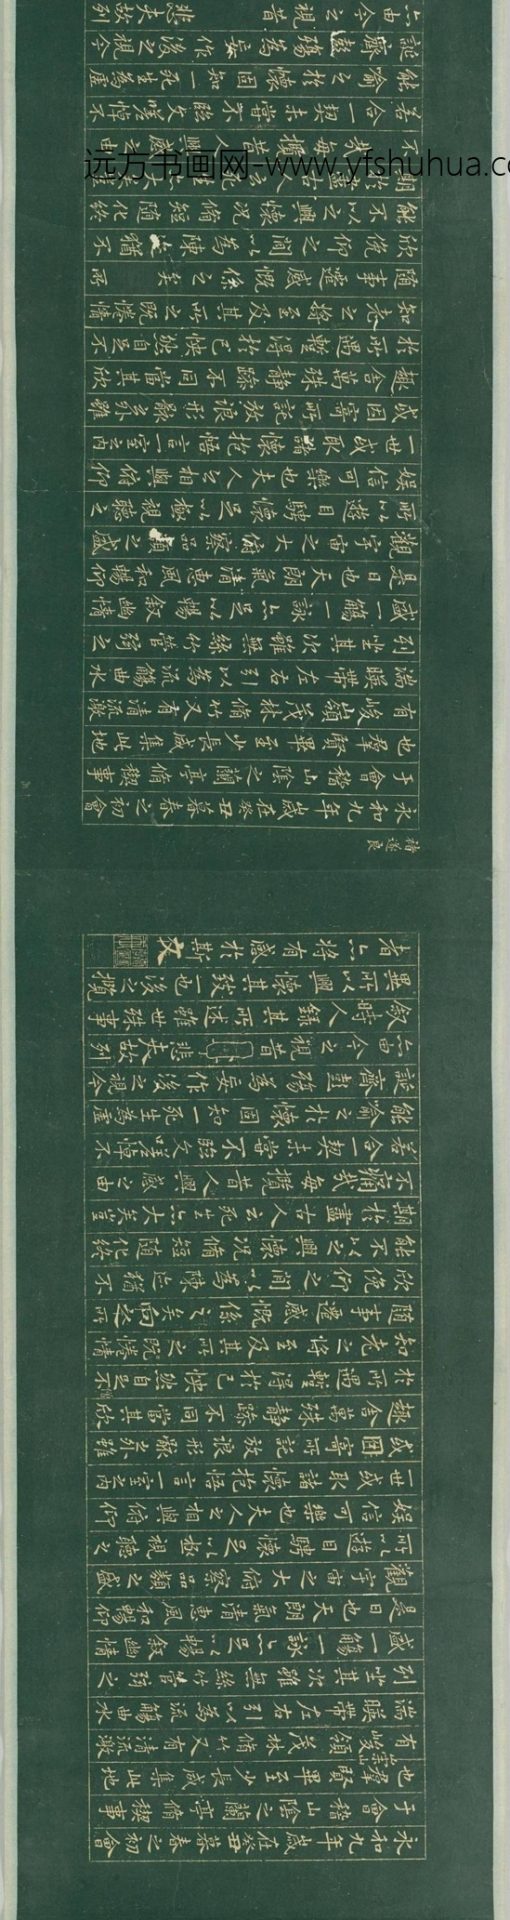 永和九年歲在癸丑暮春之初會
于會稽山陰之蘭亭脩稧事
也群賢畢至少長咸集此地
有崇山峻領茂林脩竹又有清流激
湍暎帶左右引以為流觴曲水
列坐其次雖無絲竹管弦之
盛一觴一詠亦足以暢敘幽情
是日也天朗氣清惠風和暢仰
觀宇宙之大俯察品類之盛
所以遊目騁懷足以極視聽之
娛信可樂也夫人之相與俯仰
一世或取諸懷抱悟言一室之內
或因寄所託放浪形骸之外雖
趣舍萬殊靜躁不同當其欣
於所遇蹔得於己怏然自足不
知老之將至及其所之既惓情
隨事遷感慨係之矣向之所
欣俛仰之間以為陳迹猶不
能不以之興懷況脩短隨化終
期於盡古人云死生亦大矣豈
不痛哉每攬昔人興感之由
若合一契未嘗不臨文嗟悼不
能喻之於懷固知一死生為虛
誕齊彭殤為妄作後之視今
亦由今之視昔悲夫故列
敘時人錄其所述雖世殊事
異所以興懷其致一也後之攬
者亦將有感於斯文
褚遂良
永和九年歲在癸丑暮春之初會
于會稽山陰之蘭亭脩稧事
也群賢畢至少長咸集此地
有峻嶺茂林脩竹又有清流激
湍暎帶左右引以為流觴曲水
列坐其次雖無絲竹管弦之
盛一觴一詠亦足以暢敘幽情
是日也天朗氣清惠風和暢仰
觀宇宙之大俯察品類之盛
所以遊目騁懷足以極視聽之
娛信可樂也夫人之相與俯仰
一世或取諸懷抱悟言一室之內
或因寄所託放浪形骸之外雖
趣舍萬殊靜躁不同當其欣
於所遇蹔得於己怏然自足不
知老之將至及其所之既惓情
隨事遷感慨係之矣所
欣俛仰之間以為陳迹猶不
能不以之興懷況脩短隨化終
期於盡古人云
不每攬昔人興感之由
若合一契未嘗不臨文嗟悼不
能喻之於懷固知一死生為虛
誕齊彭殤為妄作後之視今
亦由今之視昔悲夫故列
远方书画网-www.yfshuhua.co